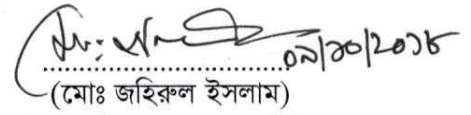 ০৯/১০/২০১৮
(মোঃ জহিরুল ইসলাম)